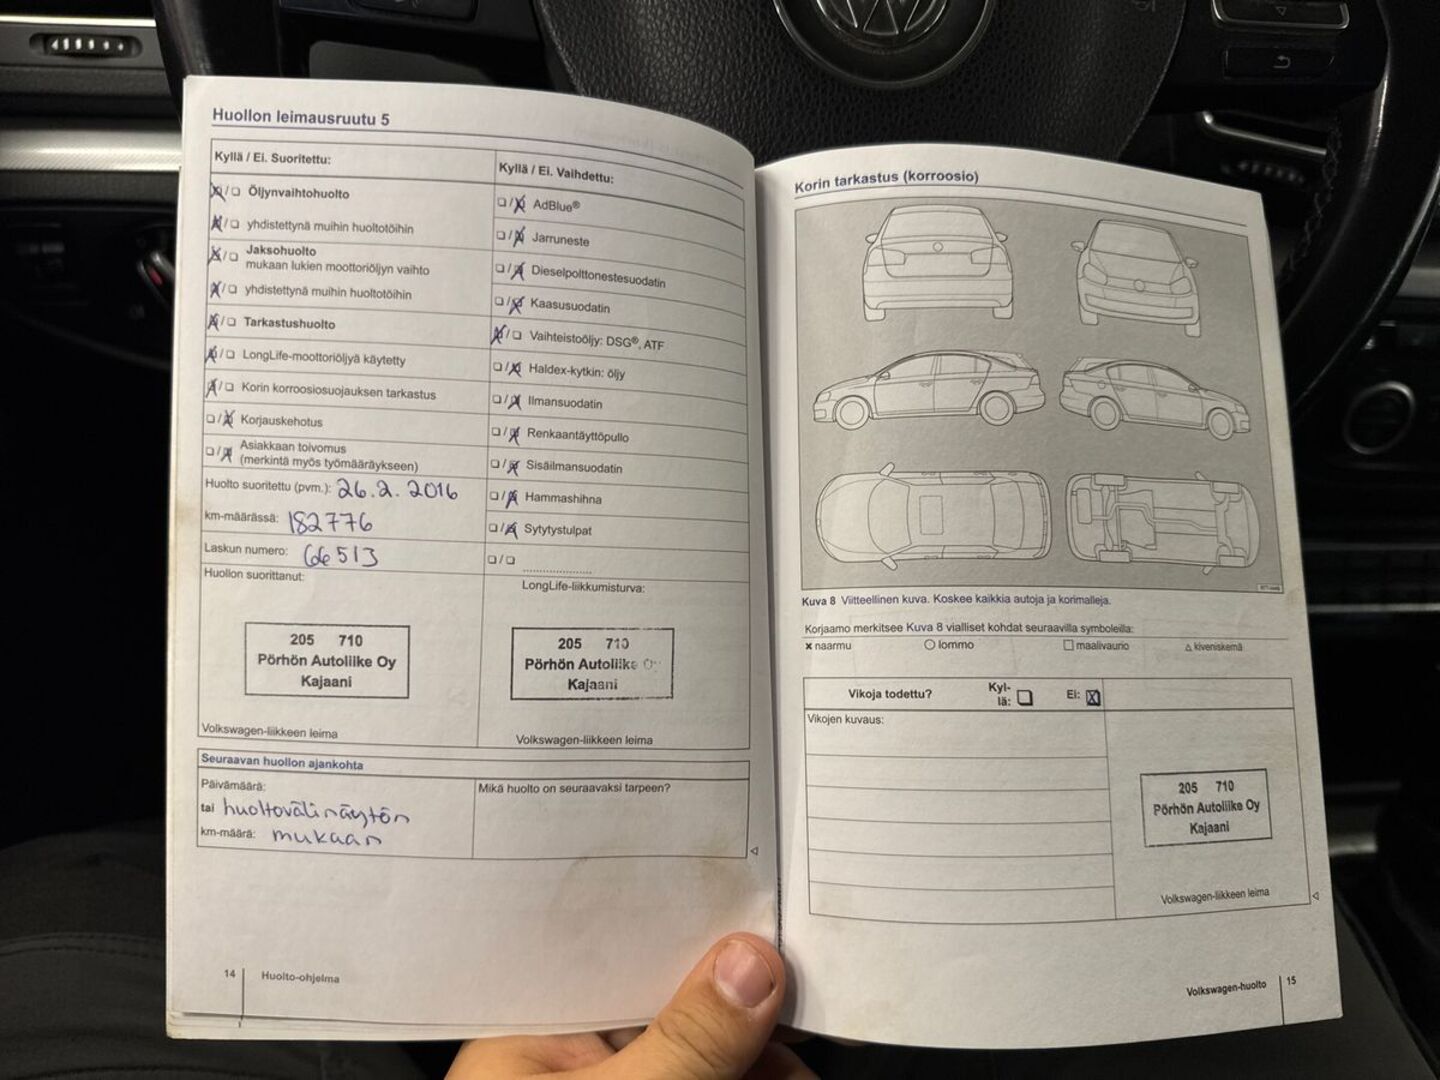 Huollon leimausruutu 5
Kyllä / Ei. Suoritettu:
☒/☐ Öljynvaihtohuolto
☒/☐ yhdistettynä muihin huoltotöihin
☒/☐ Jaksohuolto
mukaan lukien moottoriöljyn vaihto
☒/☐ yhdistettynä muihin huoltotöihin
☒/☐ Tarkastushuolto
☒/☐ LongLife-moottoriöljyä käytetty
☒/☐ Korin korroosiosuojauksen tarkastus
☐/☒ Korjauskehotus
☐/☒ Asiakkaan toivomus
(merkintä myös työmääräykseen)
Huolto suoritettu (pvm.): 26.2.2016
km-määrässä: 182776
Laskun numero: 66513
Huollon suorittanut:
205 710
Pörhön Autoliike Oy
Kajaani
Volkswagen-liikkeen leima
Kyllä / Ei. Vaihdettu:
☐/☒ AdBlue®
☐/☒ Jarruneste
☐/☒ Dieselpolttonestesuodatin
☐/☒ Kaasusuodatin
☒/☐ Vaihteistoöljy: DSG®, ATF
☐/☒ Haldex-kytkin: öljy
☐/☒ Ilmansuodatin
☐/☒ Renkaantäyttöpullo
☐/☒ Sisäilmansuodatin
☐/☒ Hammashihna
☐/☒ Sytytystulpat
☐/☐ ....................
LongLife-liikkumisturva:
205 710
Pörhön Autoliike Oy
Kajaani
Volkswagen-liikkeen leima
Seuraavan huollon ajankohta
Päivämäärä:
tai huoltovälinäytön
km-määrä: mukaan
Mikä huolto on seuraavaksi tarpeen?
14 Huolto-ohjelma
Korin tarkastus (korroosio)
Kuva 8 Viitteellinen kuva. Koskee kaikkia autoja ja korimalleja.
Korjaamo merkitsee Kuva 8 vialliset kohdat seuraavilla symboleilla:
× naarmu ○ lommo □ maalivaurio △ kiveniskemä
Vikoja todettu? Kyl-
lä: ☐ Ei: ☒
Vikojen kuvaus:
205 710
Pörhön Autoliike Oy
Kajaani
Volkswagen-liikkeen leima
Volkswagen-huolto 15